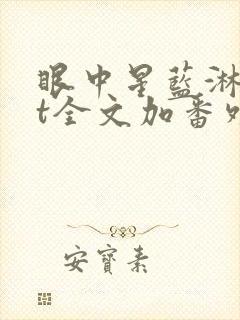 眼中星蓝淋t
全文加番外
安寳素